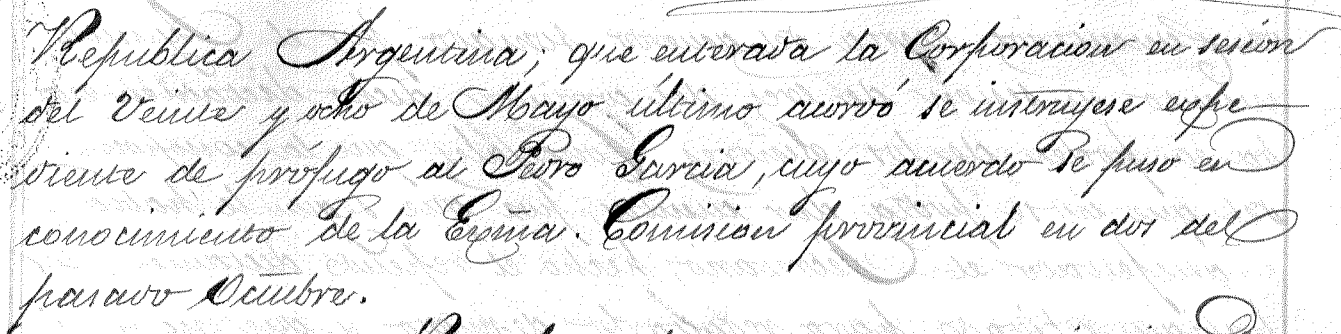 Republica Argentina; que enterada la Corporacion en sesión
del veinte y ocho de Mayo último acordó se instruyese expe-
diente de prófugo al Pedro Garcia, cuyo acuerdo se puso en
conocimiento de la Exma. Comision provincial en dos del
pasado Octubre.